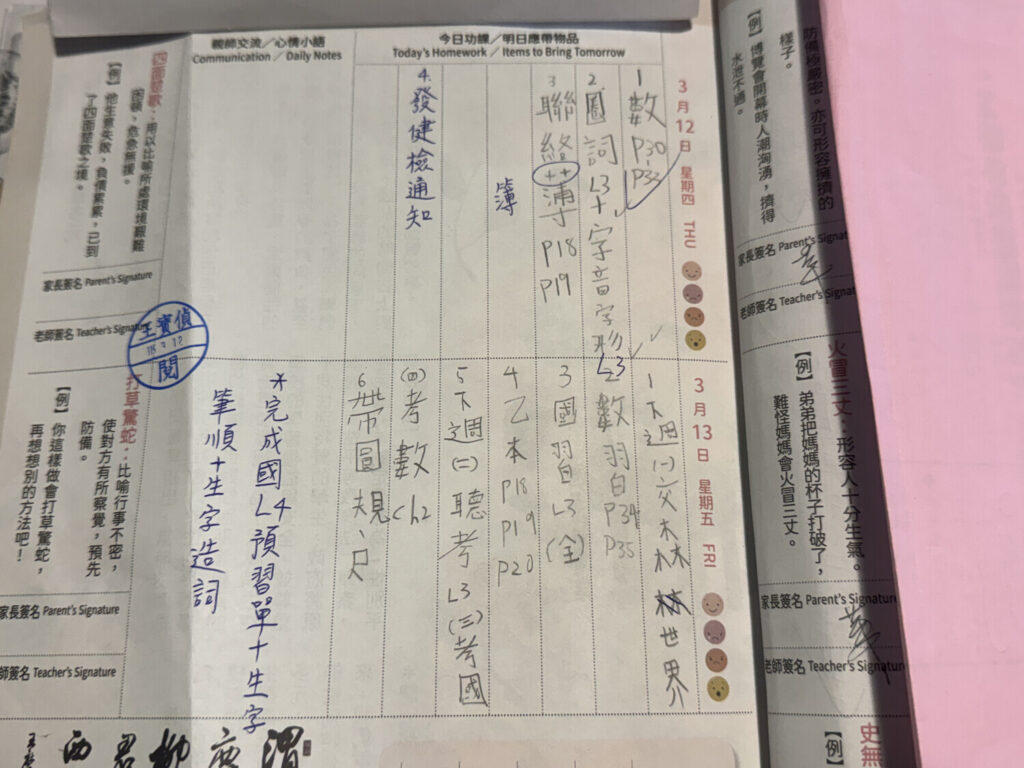 【例】博覽會開幕時人潮洶湧，擠得
水泄不通。
防備極嚴密。亦可形容擁擠的
樣子。
家長簽名 Parent's Signature
老師簽名 Teacher's Signature
火冒三丈：形容人十分生氣。
【例】弟弟把媽媽的杯子打破了，
難怪媽媽會火冒三丈。
家長簽名 Parent's Signature
老師簽名 Teacher's Signature
【例】
今日功課／明日應帶物品
Today's Homework／Items to Bring Tomorrow
親師交流／心情小語
Communication／Daily Notes
3月12日 星期四 THU
1 數 P30 P33
2. 圓詞L3十字音字形L3
3 聯絡薄 P18 P19
簿
4. 發健檢通知
四面楚歌：用以比喻所處環境艱難
困頓，危急無援。
【例】他生意失敗，負債累累，已到
了四面楚歌之境。
家長簽名 Parent's Signature
老師簽名 Teacher's Signature
3月13日 星期五 FRI
1 下週(一)交森林世界
2 數習自P34 P35
3 國習L3(全)
4 乙本P18 P19 P20
5 下週(二)聽考L3(三)考國
(四)考數ch2
6 帶圓規、尺
*完成國L4預習單+生字
筆順+生字造詞
打草驚蛇：比喻行事不密，
使對方有所察覺，預先
防備。
【例】你這樣做會打草驚蛇，
再想想別的方法吧！
家長簽名 Parent's Signature
老師簽名 Teacher's Signature